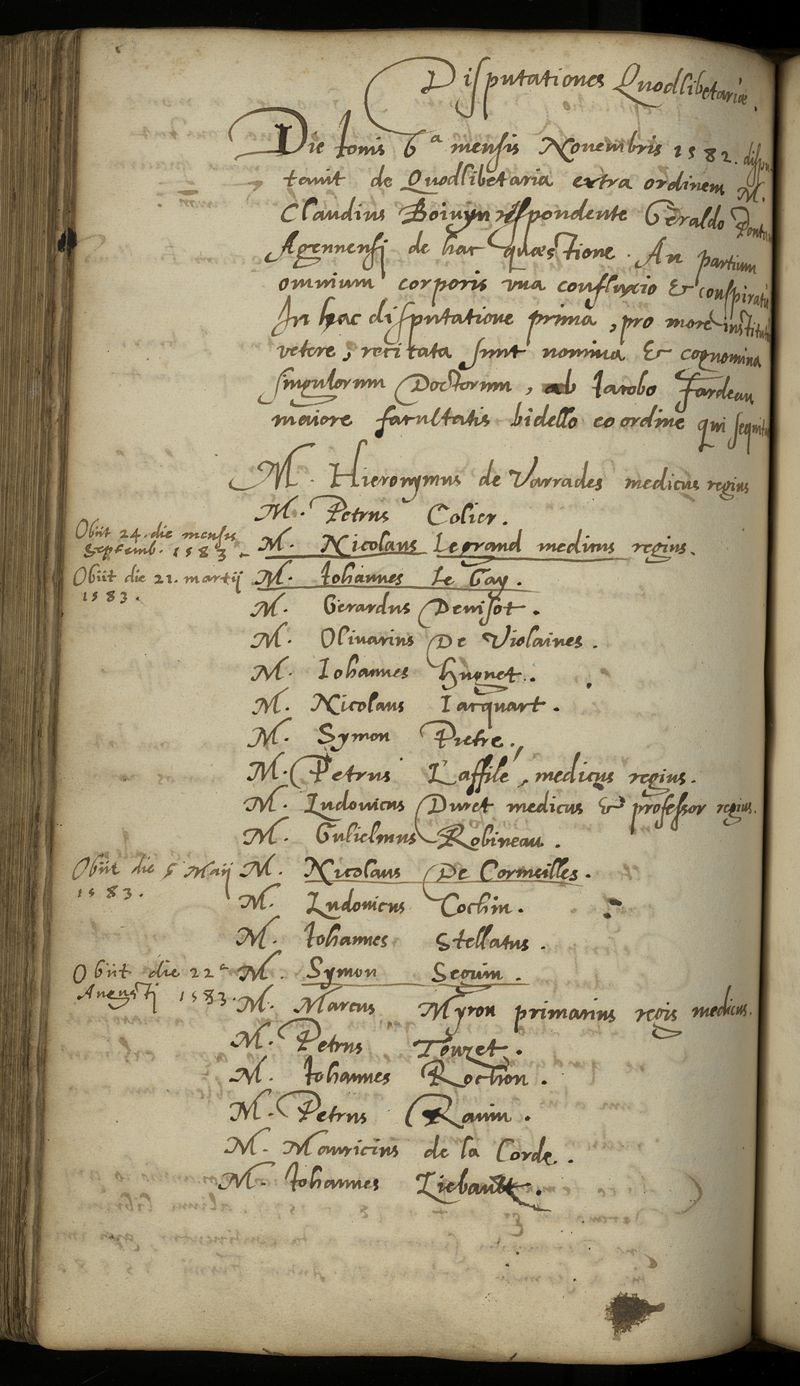 Disputationes Quodlibetariæ.
Die Iouis 6a mensis Nouembris 1582. dispu
tauit de Quodlibetaria extra ordinem M.
Claudius Boiuyn respondente Geraldo
Agennensi de hac quæstione. An partium
omnium corporis vna confluxio & conspiratio
In hac disputatione prima, pro more instituto
vetere, recitata sunt nomina & cognomina
singulorum Doctorum, ab Iacobo Fardeau
maiore facultatis bidello eo ordine qui sequitur
M. Hieronymus de Varrades medicus regius
M. Petrus Colier.
Obiit 24. die mensis
Septemb. 1583.
M. Nicolaus Legrand medicus regius.
Obiit die 21. martij
1583.
M. Iohannes Le Gay.
M. Gerardus Denisot.
M. Oliuarius De Violaines.
M. Iohannes Huguet.
M. Nicolaus Iacquart.
M. Symon Pietre.
M. Petrus Laffilé, medicus regius.
M. Ludouicus Duret medicus & professor regius.
M. Gulielmus Robineau.
Obiit die 5 Maij
1583.
M. Nicolaus De Cormeilles.
M. Ludouicus Cochin.
M. Iohannes Stellatus.
Obiit die 22a
Augusti 1583.
M. Symon Seguin.
M. Marcus Myron primarius regis medicus.
M. Petrus Touzet.
M. Iohannes Rochon.
M. Petrus Rauin.
M. Mauricius de la Corde.
M. Iohannes Liebault.